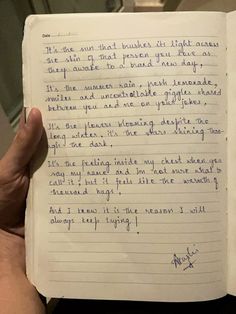 Date
It's the sun that brushes its light across
the skin of that person you love as
they awake to a brand new day.
It's the summer rain, fresh lemonade,
smiles and uncontrollable giggles shared
between you and me on your jokes.
It's the flowers blooming despite the
long winter, it's the stars shining throu-
gh the dark.
It's the feeling inside my chest when you
say my name and Im not sure what to
call it, but it feels like the warmth of
thousand hugs.
And I know it is the reason I will
always keep trying!